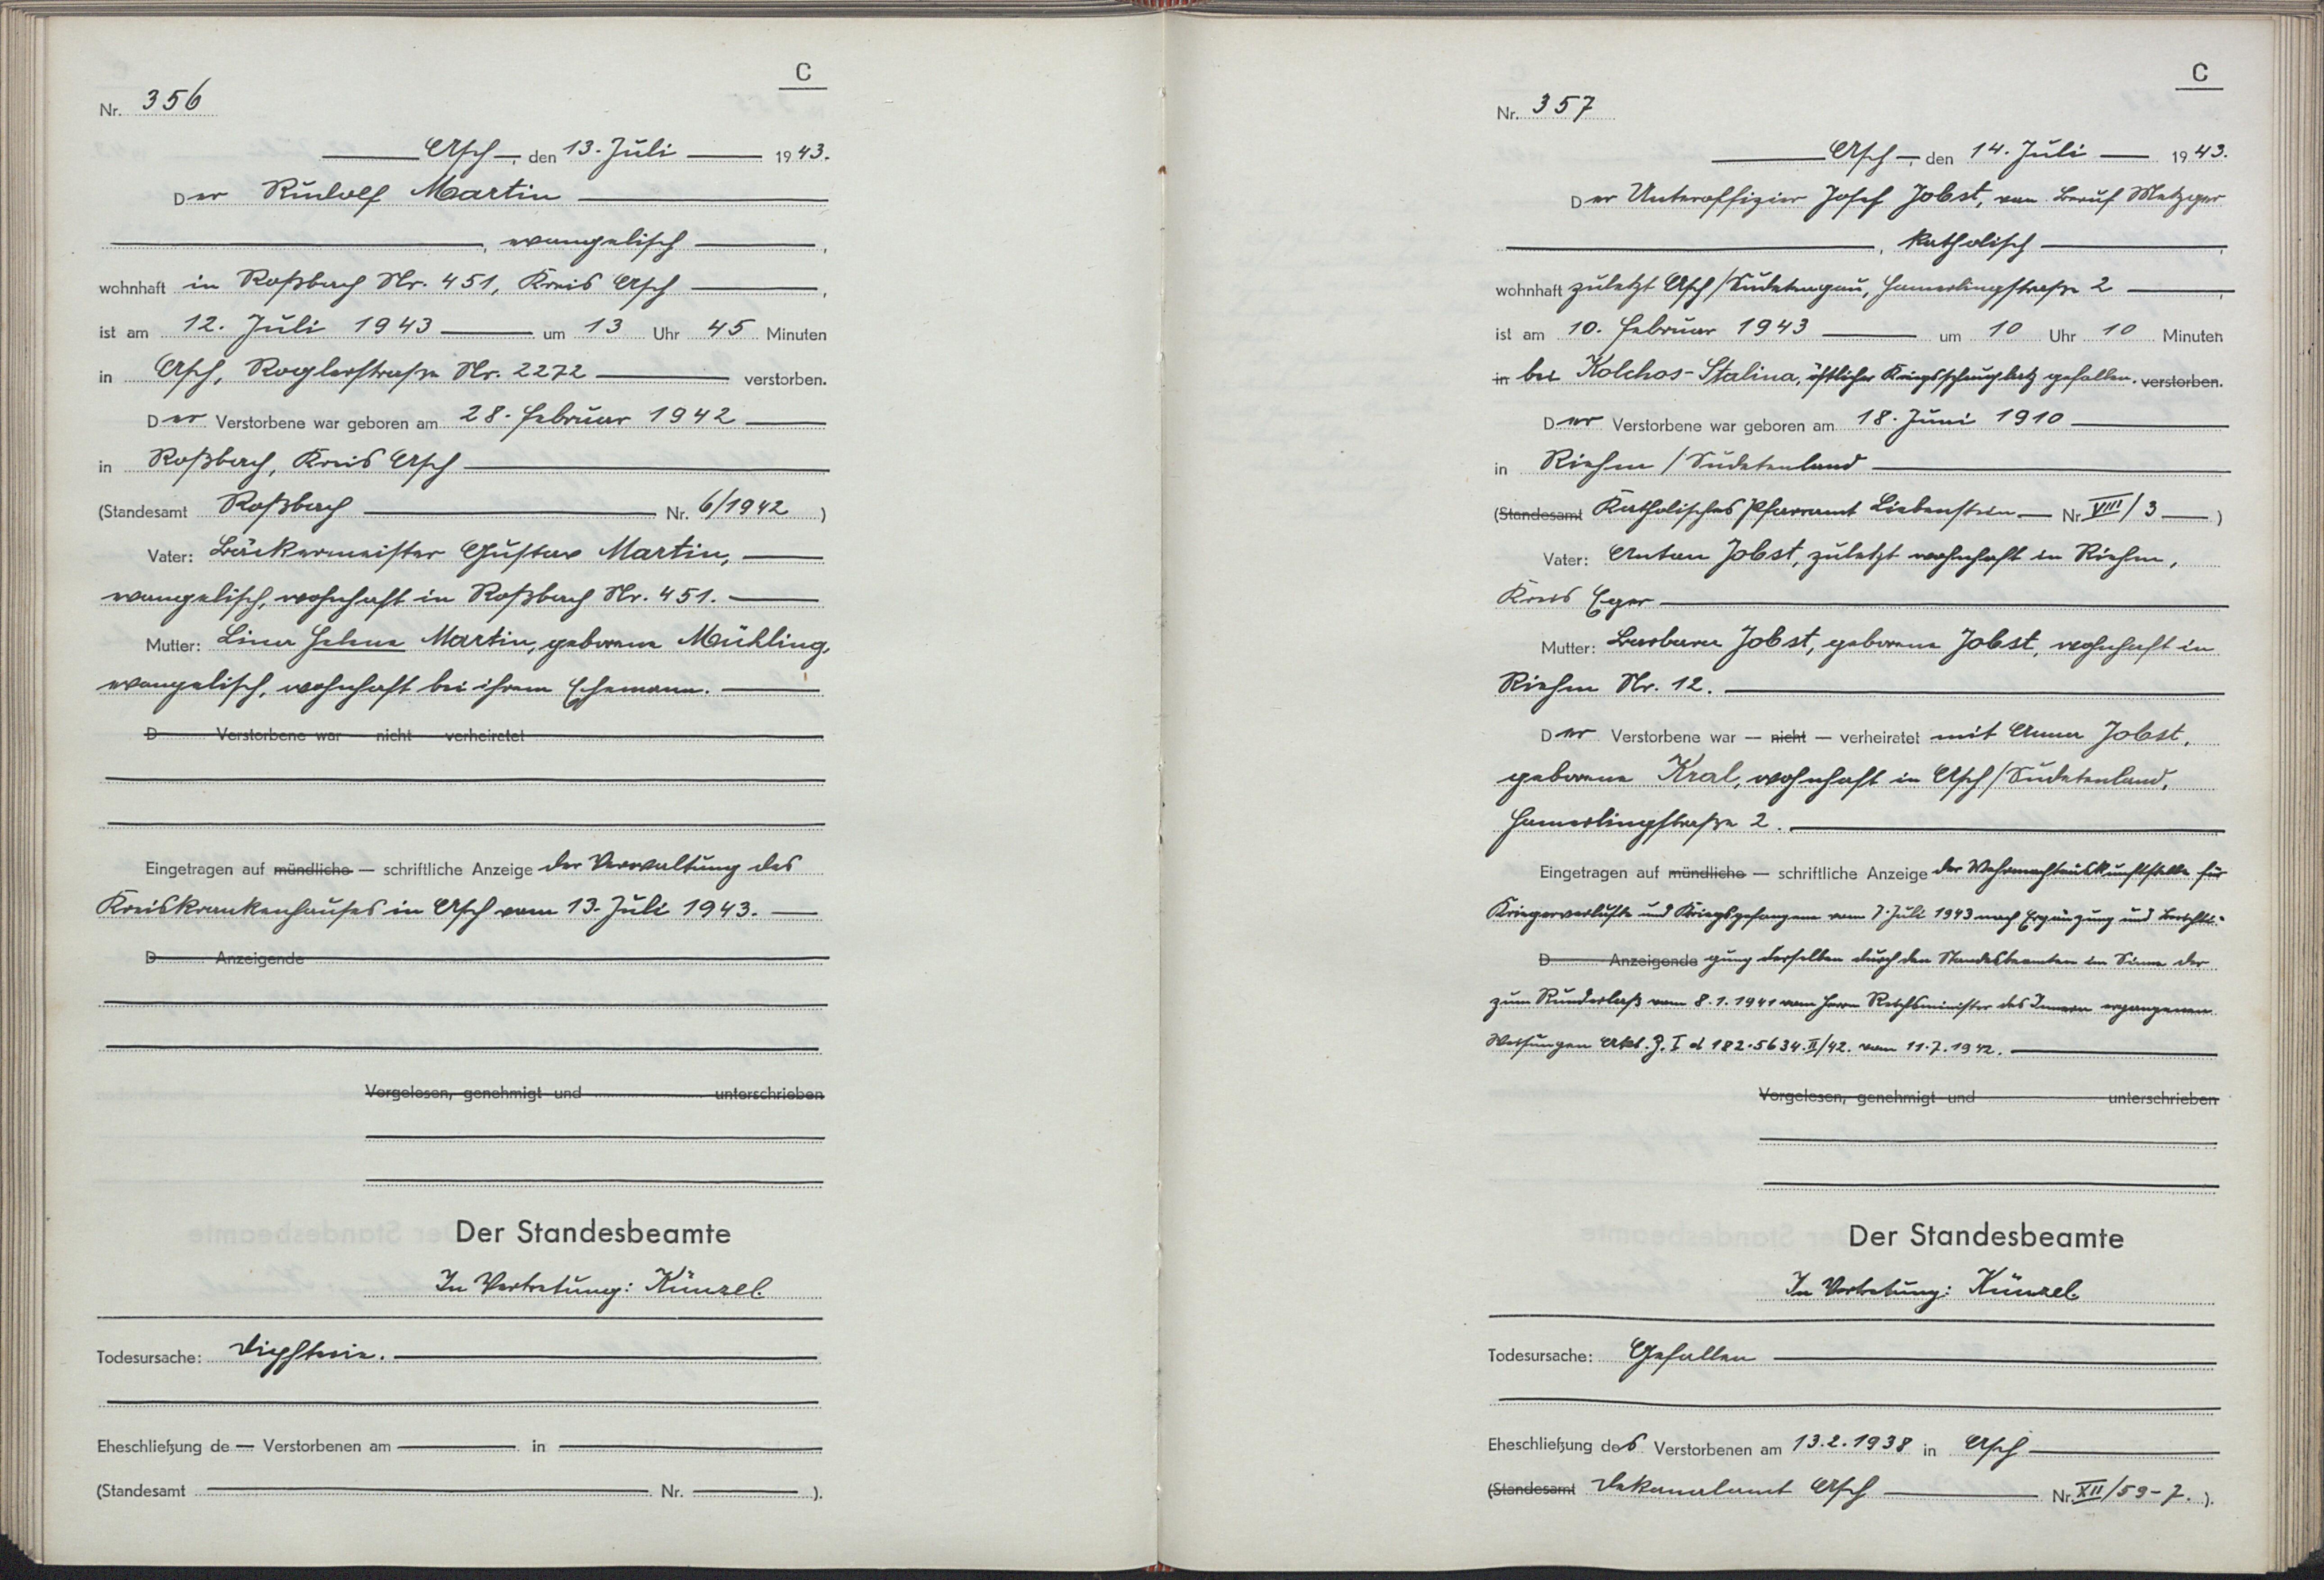 C
Nr. 356
Asch, den 13. Juli 1943.
Der Rudolf Martin
, evangelisch ,
wohnhaft in Roßbach Nr. 451, Kreis Asch ,
ist am 12. Juli 1943 um 13 Uhr 45 Minuten
in Asch, Roglerstraße Nr. 2272 verstorben.
Der Verstorbene war geboren am 28. Februar 1942
in Roßbach, Kreis Asch
(Standesamt Roßbach Nr. 6/1942 )
Vater: Bäckermeister Gustav Martin,
evangelisch, wohnhaft in Roßbach Nr. 451.
Mutter: Lina Helene Martin, geborene Mühling,
evangelisch, wohnhaft bei ihrem Ehemann.
D Verstorbene war — nicht — verheiratet
Eingetragen auf mündliche — schriftliche Anzeige der Verwaltung des
Kreiskrankenhauses in Asch vom 13. Juli 1943.
D Anzeigende
Vorgelesen, genehmigt und unterschrieben
Der Standesbeamte
In Vertretung: Künzel.
Todesursache: Diphterie.
Eheschließung de Verstorbenen am in
(Standesamt Nr. ).
C
Nr. 357
Asch, den 14. Juli 1943.
Der Unteroffizier Josef Jobst, von Beruf Metzger
, katholisch ,
wohnhaft zuletzt Asch/Sudetengau, Hamerlingstraße 2 ,
ist am 10. Februar 1943 um 10 Uhr 10 Minuten
in bei Kolchos-Stalina, östlicher Kriegsschauplatz gefallen. verstorben.
Der Verstorbene war geboren am 18. Juni 1910
in Riehm / Sudetenland
(Standesamt Katholisches Pfarramt Liebenstein Nr. VIII/3 )
Vater: Anton Jobst, zuletzt wohnhaft in Riehm,
Kreis Eger
Mutter: Barbara Jobst, geborene Jobst, wohnhaft in
Riehm Nr. 12.
Der Verstorbene war — nicht — verheiratet mit Anna Jobst,
geborene Kral, wohnhaft in Asch/Sudetenland,
Hamerlingstraße 2.
Eingetragen auf mündliche — schriftliche Anzeige der Wehrmachtauskunftstelle für
Kriegerverluste und Kriegsgefangene vom 7. Juli 1943 nach Ergänzung und Berichti-
D Anzeigende gung derselben durch den Standesbeamten im Sinne der
zum Runderlaß vom 8.1.1941 vom Herrn Reichsminister des Innern ergangenen
Weisungen Akt. Z. I d 182.5634.II/42. vom 11.7.1942.
Vorgelesen, genehmigt und unterschrieben
Der Standesbeamte
In Vertretung: Künzel.
Todesursache: Gefallen
Eheschließung des Verstorbenen am 13.2.1938 in Asch
(Standesamt Dekanalamt Asch Nr. XII/59-7. ).